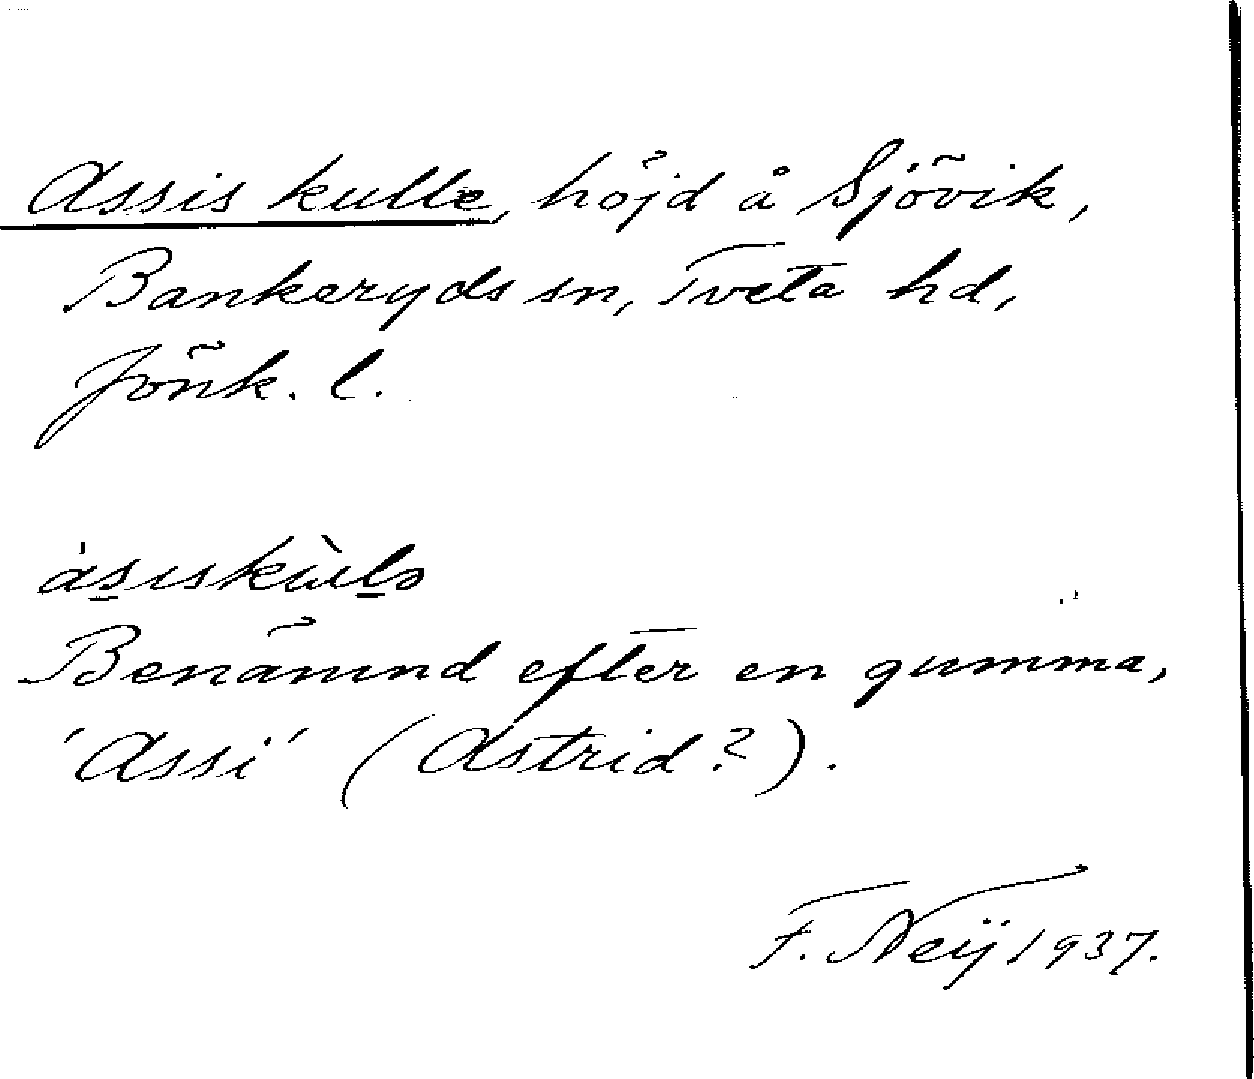 Assis kulle, höjd å Sjövik,
Bankeryds sn, Tveta hd,
Jönk. l.
às̲ıskùl̲ə
Benämnd efter en gumma,
'Assi' (Astrid?).
F. Neij 1937.